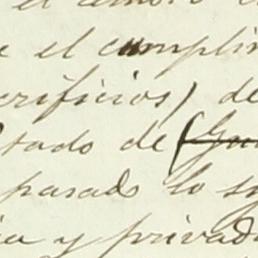 el
e el cumplim
crificios) de
stado de (
pasado lo s
ia y privada